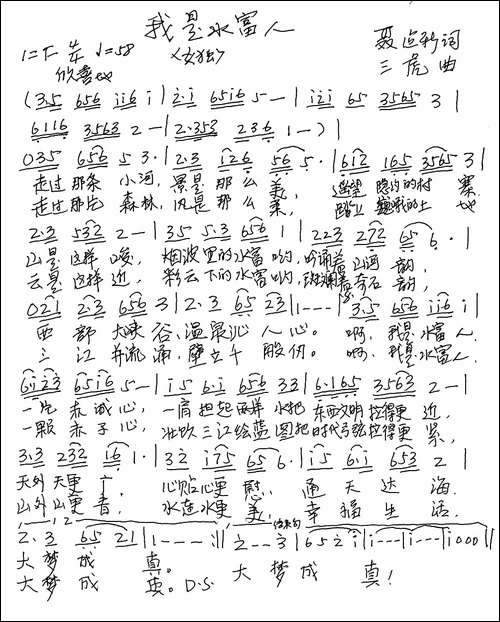 我是水富人
<女独>
1=T 4/4 ♩=58
欣喜地
三虎 曲
(35 656 ii6 i | 2·i 65i6 5 - | i2i 65 3565 3 |
6116 3563 2 - | 2·353 236 1 - ) |
035 656 5 3· | 2·3 i26 56 5· | 6i2 165 3565 3 |
走过那条 小河,景是 那么 美, 遥望 隐约的村 寨.
走过那片 森林,风是 那么 柔, 踏上 巍峨的土 地
2·3 532 2 - | 35 5·3 656 1 | 223 272 65 6· |
山是 这样 峻, 烟波里的水富哟,吟诵着 山河 韵,
云是 这样 近, 彩云下的水富哟,斑斓着 奇石 韵,
021 2·3 656 3 | 2·3 65 23 | 1 - - - | 3·5 656 ii6 i |
西 部 大峡 谷,温泉沁 人心。 啊, 我是水富人.
三 江 并流 涌,壁立千 股仞。 啊, 我是水富人.
6i23 65i6 5 - | i5 6·i 656 33 | 6·165 3563 2 - |
一片 赤诚心, 一肩担起两样水把 东西文明拉得更 近,
一颗 赤子心, 壮歌三江绘蓝图把时代弓弦拉得更 紧,
3·3 232 i6 1· | 32 i75 65 6· | i5 6i 653 2 |
天外天更 广, 心贴心更 慰, 通天 达 海.
山外山更 青, 水连水更 美, 幸福 生 活.
1 2 结束句
2·3 65 21 | 1 - - - :| 2 - - 3 | 6 5 2 i | i - - - | i - - - | i 0 0 0 ||
大梦成 真。
大梦成 真。D.S. 大 梦 成 真!